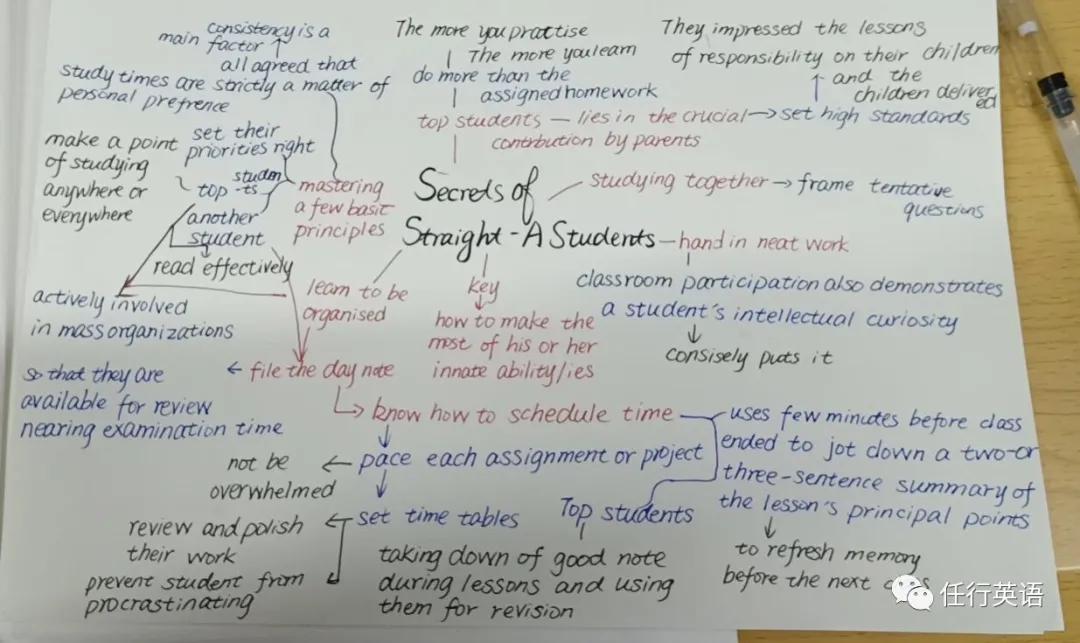 consistency is a
main factor
all agreed that
study times are strictly a matter of
personal prefrence
The more you practise
The more you learn
do more than the
assigned homework
top students — lies in the crucial
contribution by parents
They impressed the lessons
of responsibility on their children
and the
children deliver
ed
set high standards
make a point
of studying
anywhere or
everywhere
set their
priorities right
top studen
-ts
another
student
read effectively
mastering
a few basic
principles
Secrets of
Straight-A Students
studying together
frame tentative
questions
hand in neat work
classroom participation also demonstrates
a student's intellectual curiosity
consisely puts it
actively involved
in mass organizations
learn to be
organised
key
how to make the
most of his or her
innate ability/ies
so that they are
available for review
nearing examination time
file the day note
know how to schedule time
uses few minutes before class
ended to jot down a two-or
three-sentence summary of
the lesson's principal points
to refresh memory
before the next
not be
overwhelmed
pace each assignment or project
set time tables
review and polish
their work
prevent student from
procrastinating
Top students
taking down of good note
during lessons and using
them for revision
任行英语